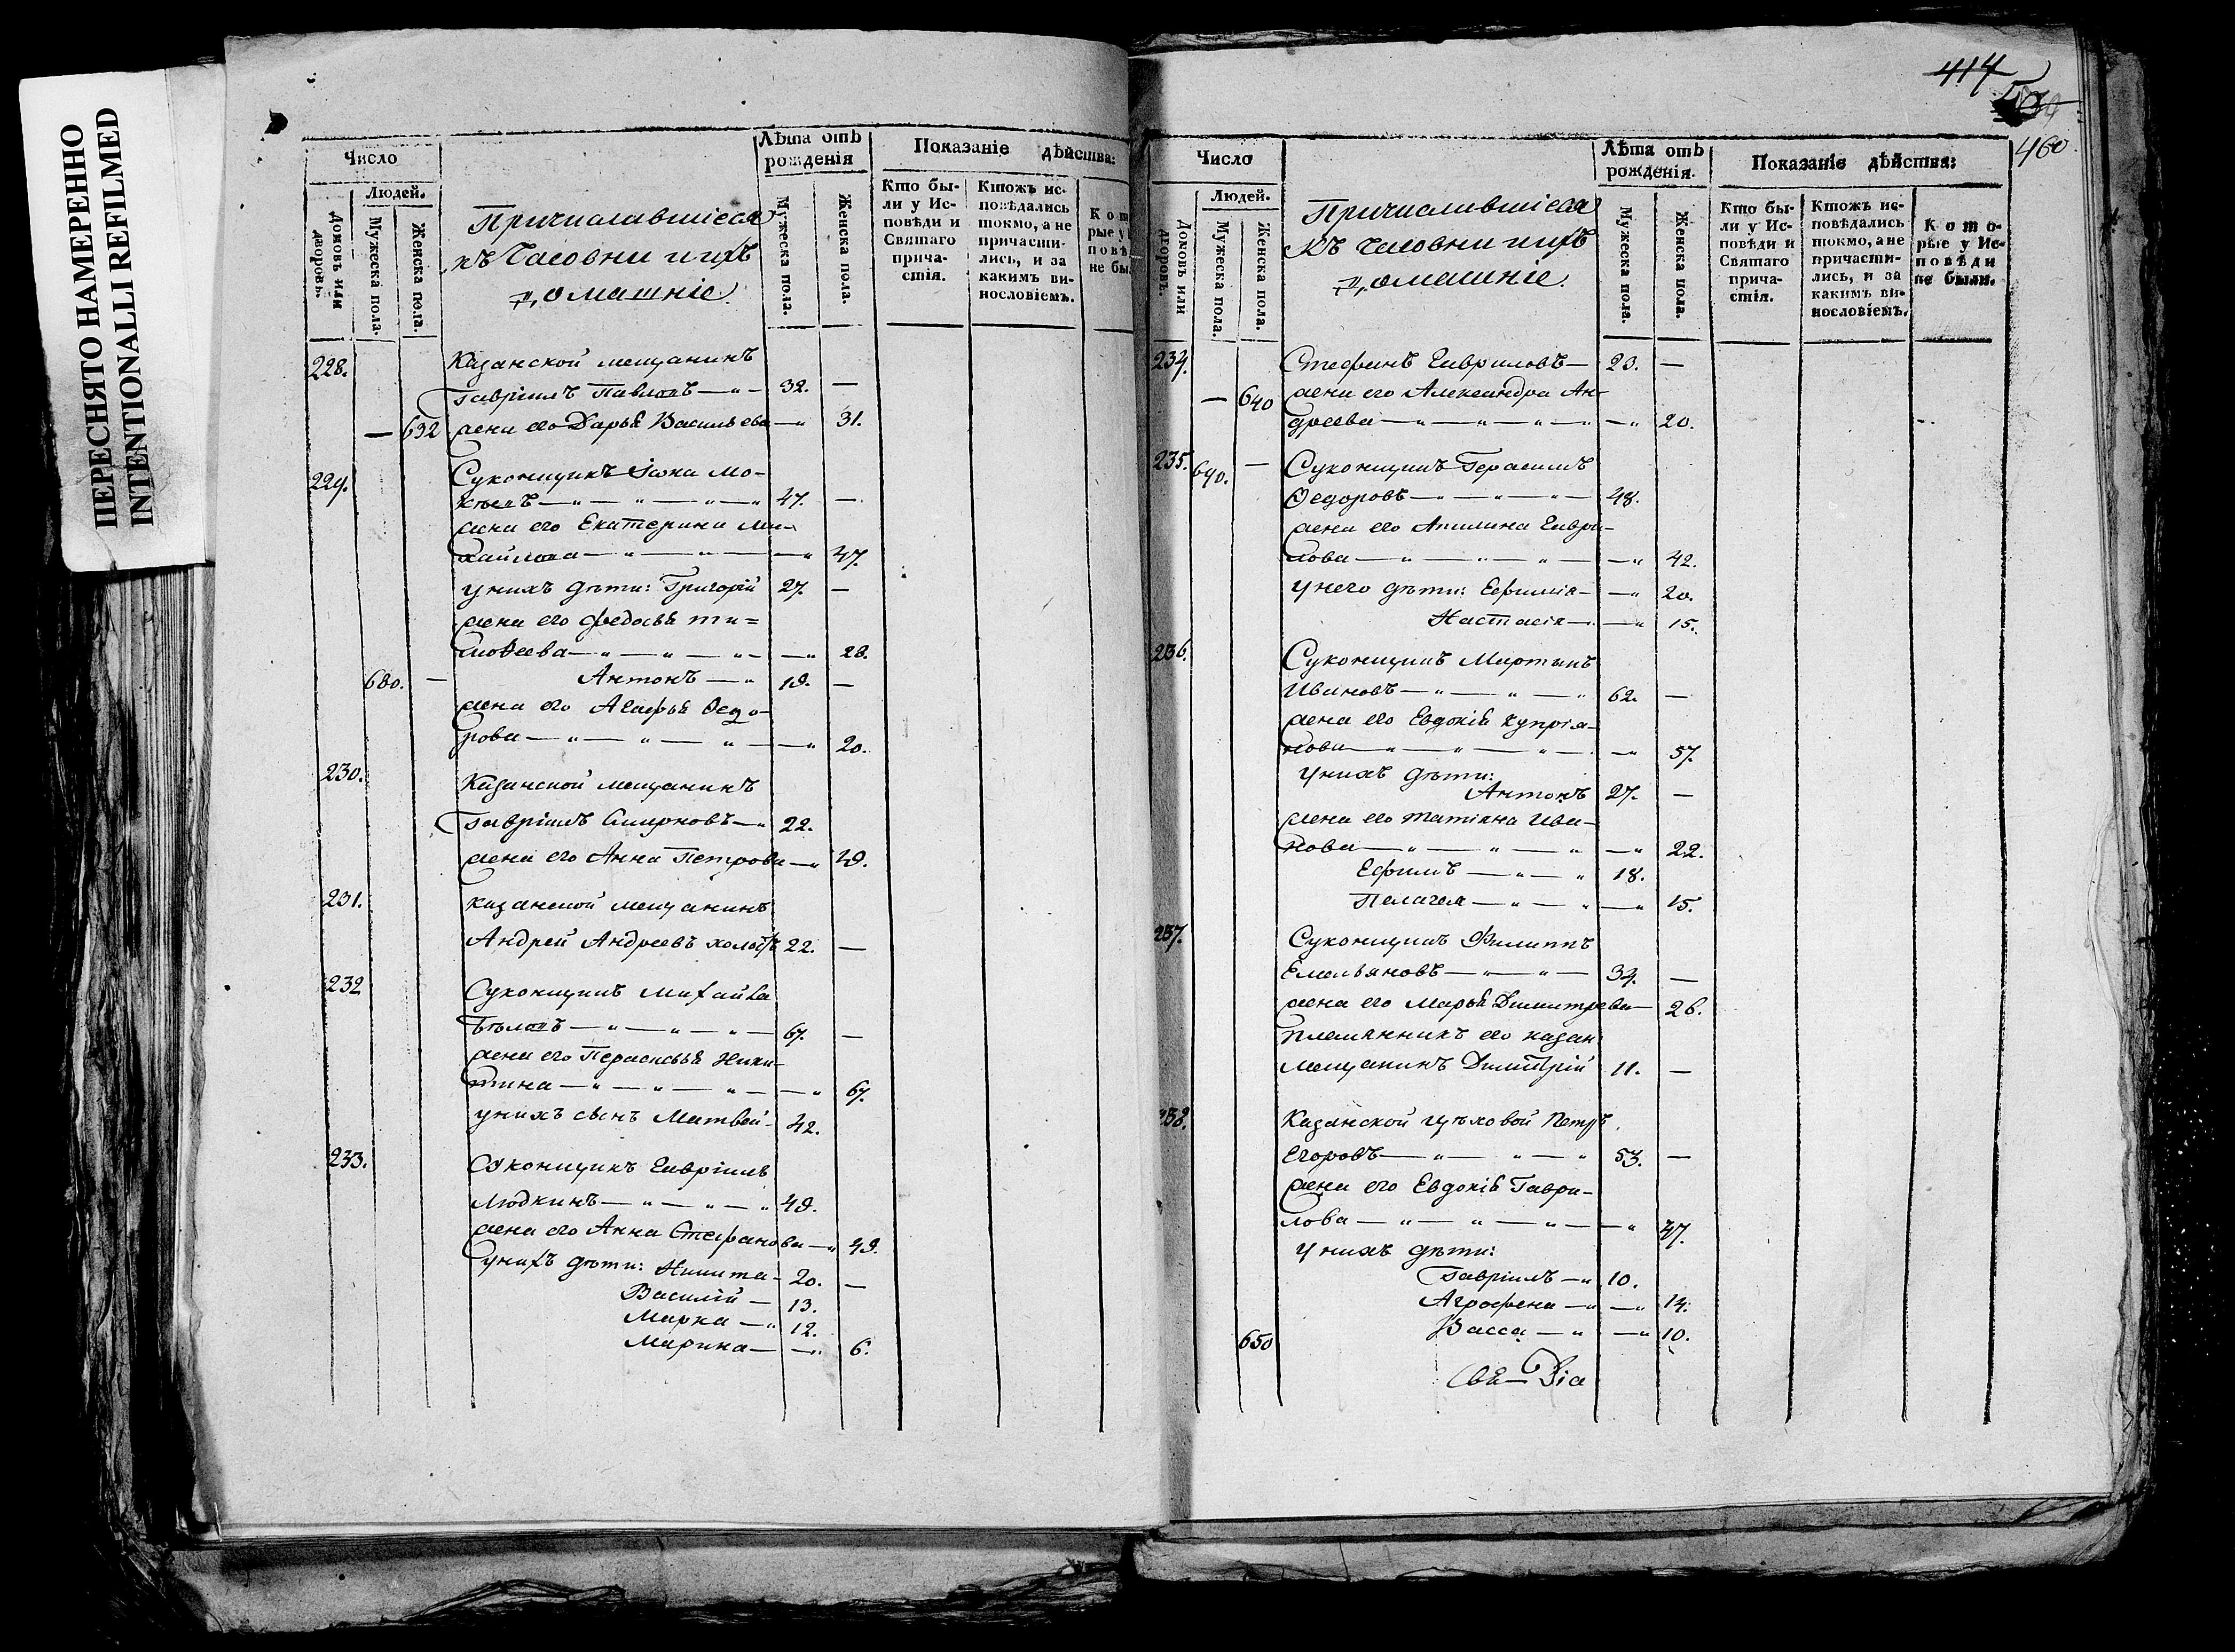 ПЕРЕСНЯТО НАМЕРЕННО
INTENTIONALLI REFILMED
Число
Лѣта отъ рожденія
Показаніе дѣйства:
Людей.
Домовъ или дворовъ.
Мужеска пола.
Женска пола.
Причислившіеся
къ Часовни и ихъ
домашніе.
Мужеска пола.
Женска пола.
Кто бы-
ли у Ис-
повѣди и
Святаго
прича-
стія.
Ктожъ ис-
повѣдались
токмо, а не
причасти-
лись, и за
какимъ ви-
нословіемъ.
228. Казанской мещанинъ
Гавріилъ Павловъ — 32. —
632 жена его Дарья Васильева — 31.
229. Суконщикъ Іона Мо-
47. —
жена его Екатерина Ми-
хайлова — 47.
у нихъ дѣти: Григорій 27. —
жена его Федосья Ти=
мофеева —
680. — Антонъ — 19. —
жена его Агафья Ѳедо-
рова — 20.
230. Казанской мещанинъ
Гавріилъ Смирновъ — 22.
жена его Анна Петрова — 19.
231. Казанской мещанинъ
Андрей Андреевъ холостъ 22. —
232 Суконщикъ Михайла
Бѣловъ — 67. —
жена его Парасковья Ники-
тина — 67.
у нихъ сынъ Матвей — 42.
233. Суконщикъ Гавріилъ
Людкинъ — 49.
жена его Анна Стефанова — 49.
у нихъ дѣти: Никита — 20. —
Василій — 13.
Марка — 12.
Марина — 6.
414
460.
Число
Лѣта отъ рожденія.
Показаніе дѣйства:
Людей.
Домовъ или дворовъ.
Мужеска пола.
Женска пола.
Причислившіеся
къ Часовни и ихъ
домашніе.
Мужеска пола.
Женска пола.
Кто бы-
ли у Ис-
повѣди и
Святаго
прича-
стія.
Ктожъ ис-
повѣдались
токмо, а не
причасти-
лись, и за
какимъ ви-
нословіемъ.
Кото-
рые у Ис-
повѣди
не были.
234. Стефанъ Гавриловъ — 23. —
— 640 жена его Александра Ан-
дреева — 20.
235. 690. — Суконщикъ Герасимъ
Ѳедоровъ — 48.
жена его Акилина Гаври-
лова — 42.
у него дѣти: Ефимія — 20.
Настасія — 15.
236. Суконщикъ Мартынъ
Ивановъ — 62. —
жена его Евдокія Купрія-
нова — 57.
у нихъ дѣти:
Антонъ 27. —
жена его Татіяна Ива-
нова — 22.
Ефимъ — 18.
Пелагея — 15.
237. Суконщикъ Филиппъ
Емельяновъ — 34. —
жена его Марья Димитрева — 26.
племянникъ его казан:
мещанинъ Димитрій 11. —
238. Казанской цѣховой Петръ
Егоровъ — 53. —
жена его Евдокія Гаври-
лова — 47.
у нихъ дѣти:
Гавріилъ — 10.
Агрофена — 14.
650 Васса — 10.